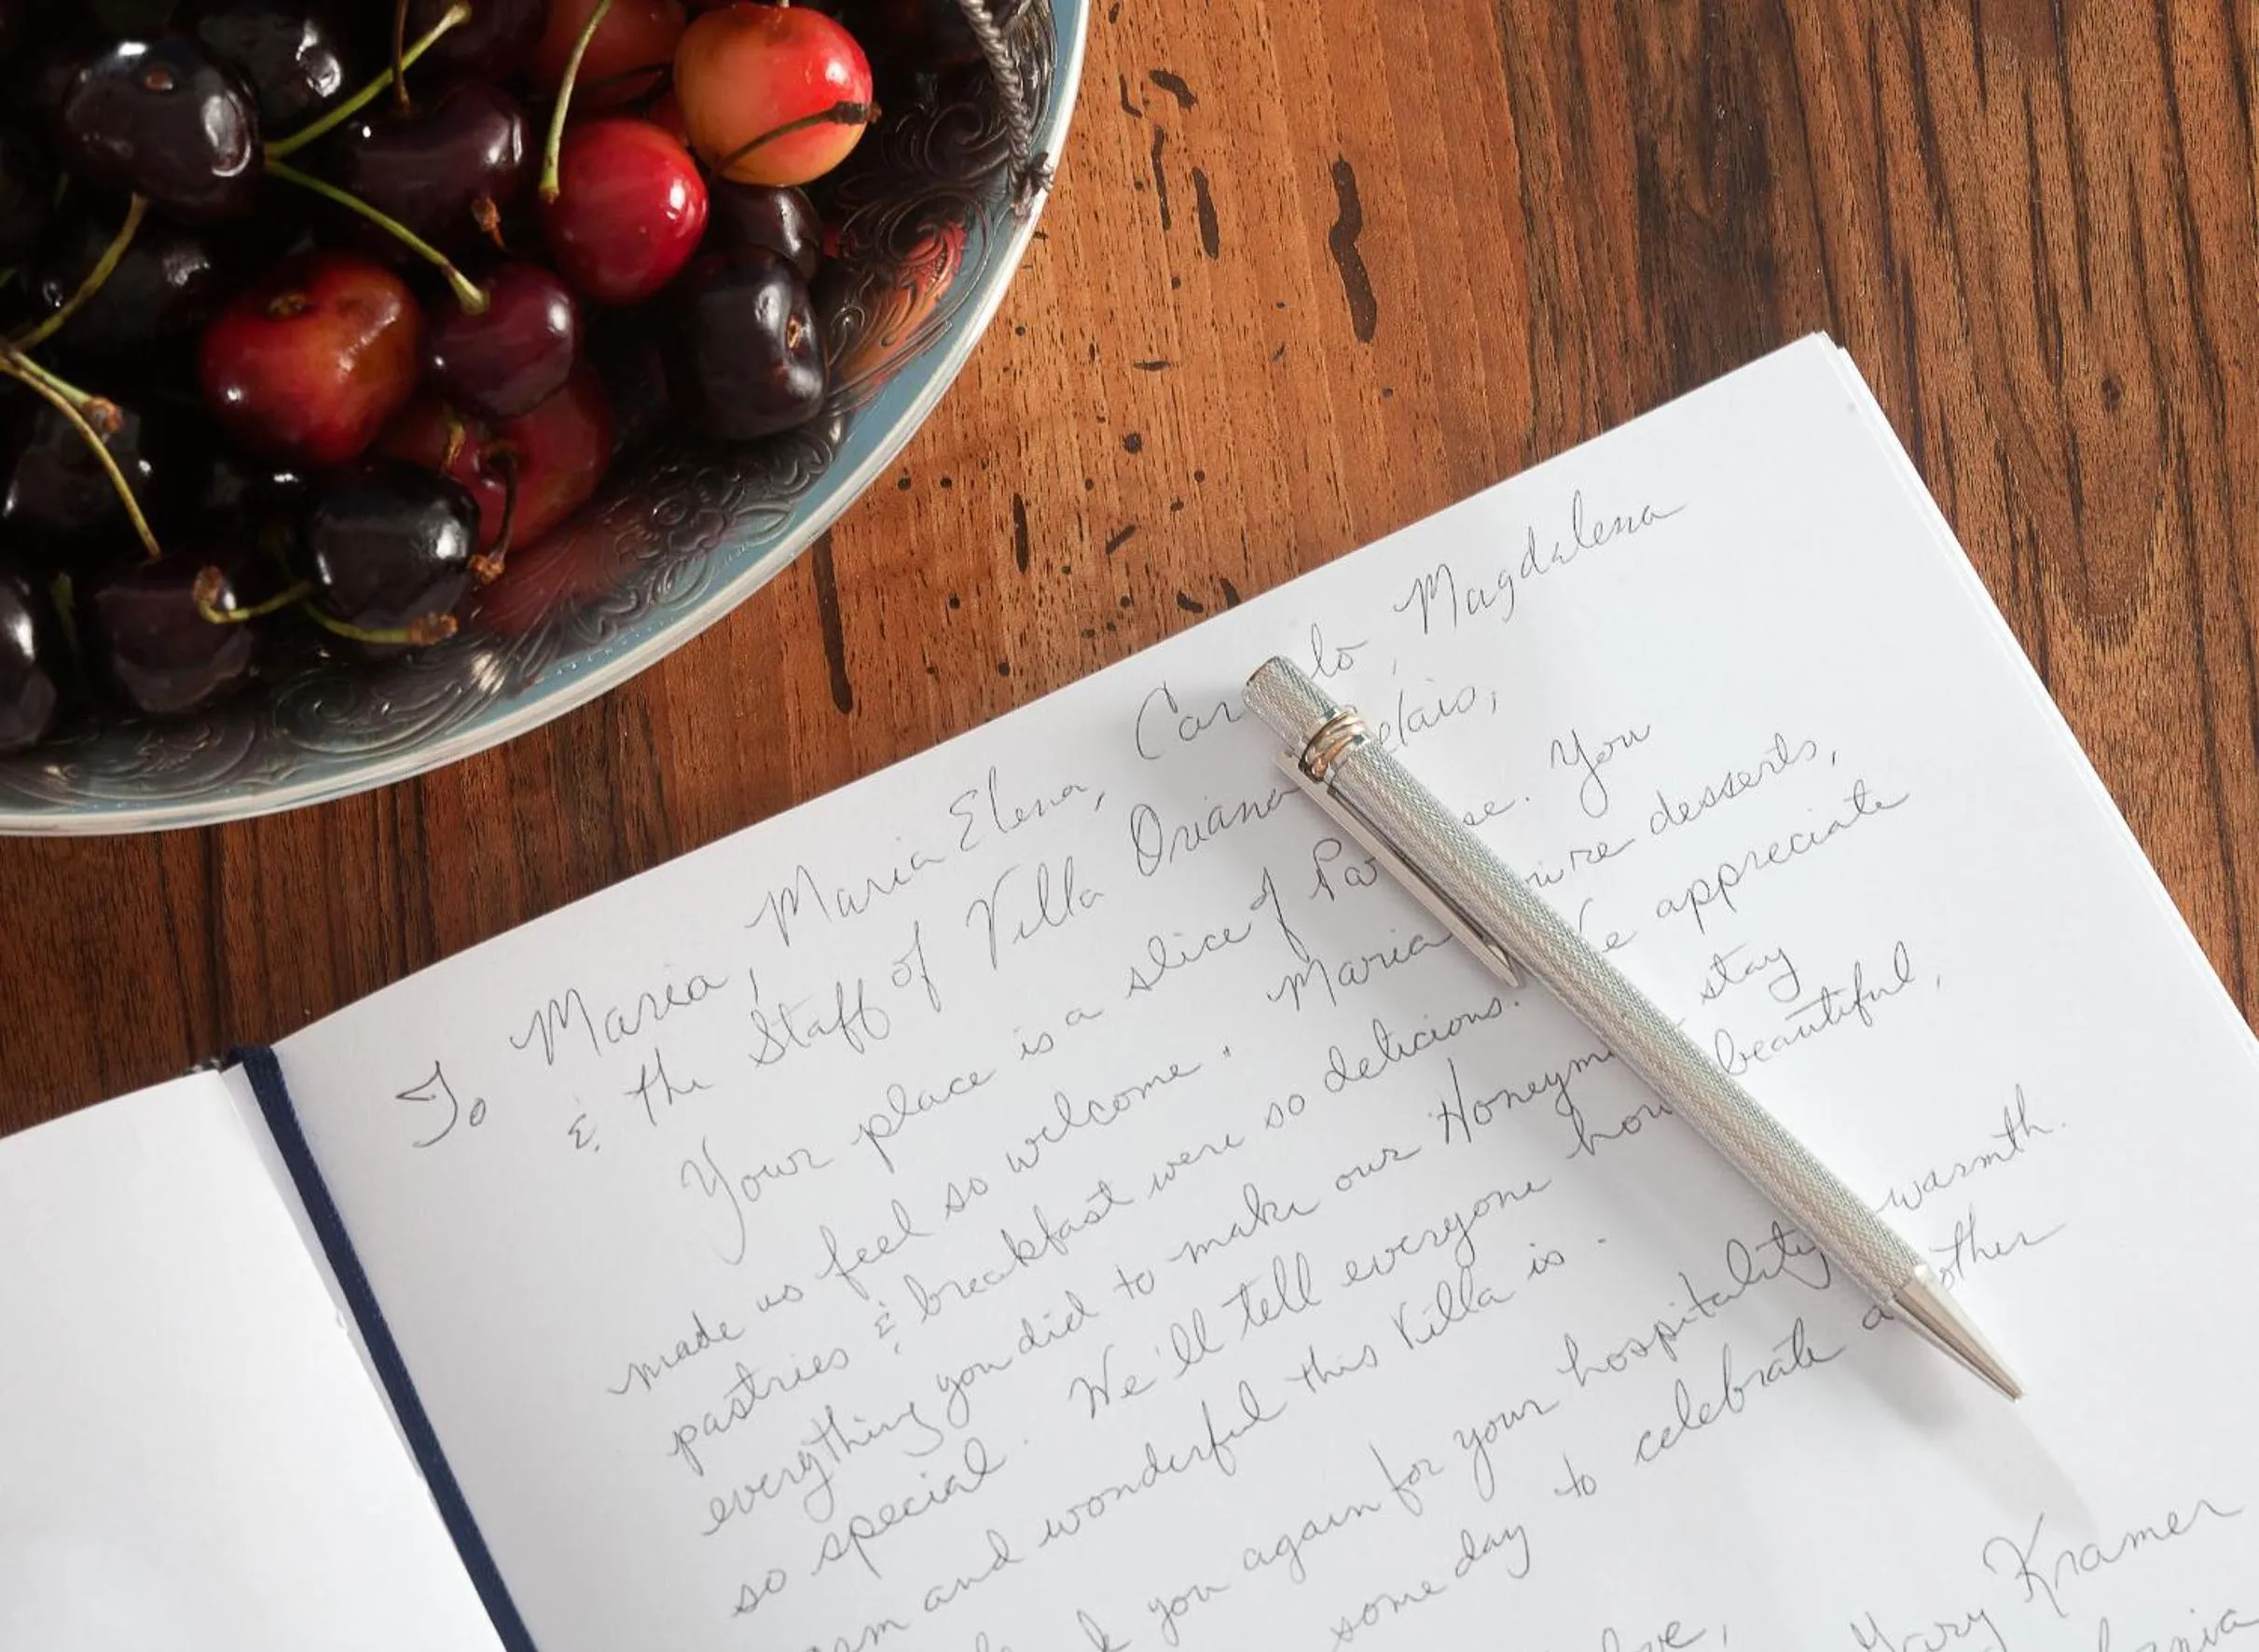 To Maria, Maria Elena, Carlo, Magdalena
& the Staff of Villa Oriana Relais,
Your place is a slice of Paradise. You
made us feel so welcome. Maria your desserts,
pastries & breakfast were so delicious. We appreciate
everything you did to make our Honeymoon stay
so special. We'll tell everyone how beautiful,
and wonderful this Villa is.
you again for your hospitality warmth.
some day to celebrate another
Love,
Mary Kramer